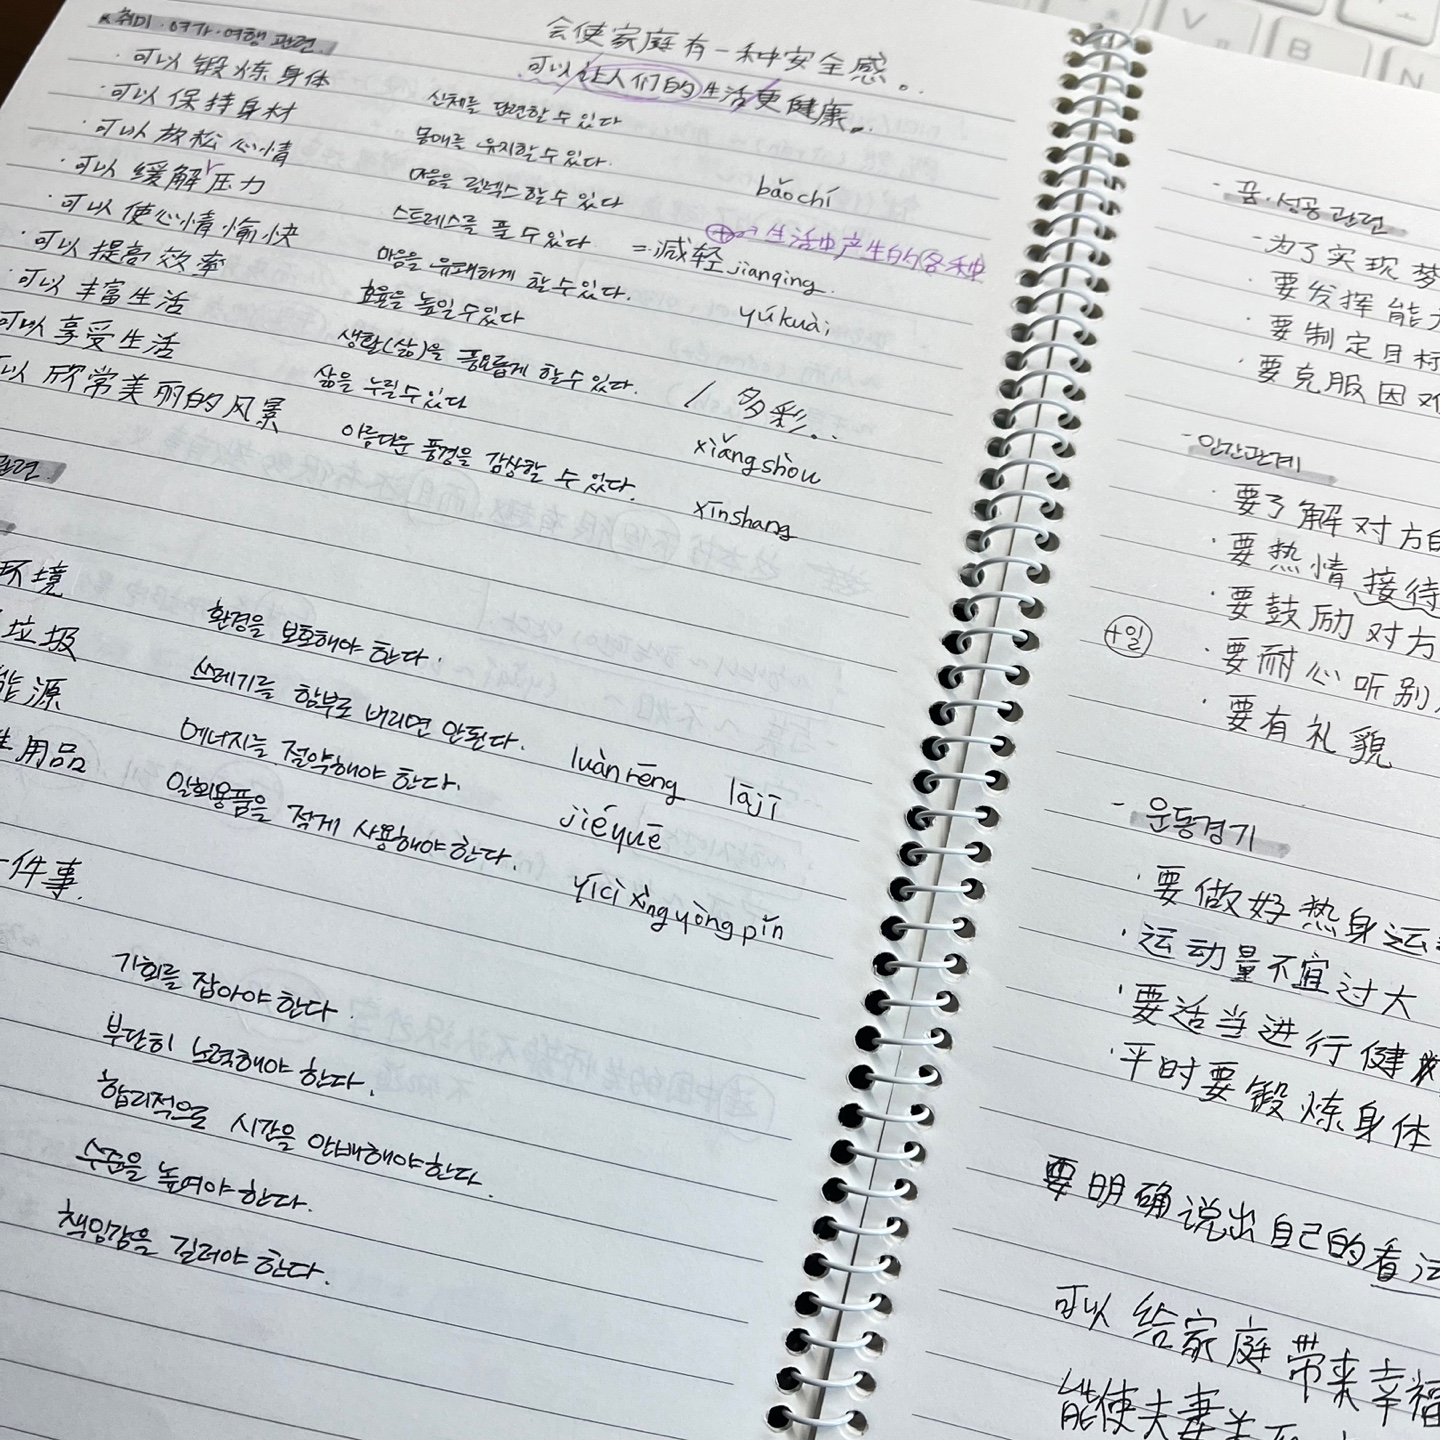 취미·여가·여행 관련
会使家庭有一种安全感。
可以让人们的生活更健康。
·可以锻炼身体 신체를 단련할 수 있다
·可以保持身材 몸매를 유지할 수 있다. bǎochí
·可以放松心情 마음을 릴렉스 할 수 있다
·可以缓解压力 스트레스를 풀 수 있다 =减轻 jianqing
⊕→生活中产生的各种
·可以使心情愉快 마음을 유쾌하게 할 수 있다. yúkuài
·可以提高效率 효율을 높일 수 있다
·可以丰富生活 생활(삶)을 풍요롭게 할 수 있다. / 多彩。
可以享受生活 삶을 누릴 수 있다 xiǎngshòu
以欣常美丽的风景 아름다운 풍경을 감상할 수 있다. xīnshang
관련.
环境 환경을 보호해야 한다.
垃圾 쓰레기를 함부로 버리면 안된다. luàn rēng lājī
能源 에너지를 절약해야 한다. jiéyuē
用品 일회용품을 적게 사용해야 한다. yīcì xìng yòng pǐn
一件事.
기회를 잡아야 한다.
부단히 노력해야 한다.
합리적으로 시간을 안배해야 한다.
수준을 높여야 한다.
책임감을 길러야 한다.
- 꿈·성공 관련
·为了实现梦
·要发挥能
·要制定目标
·要克服因难
- 인간관계
·要了解对方的
·要热情接待
·要鼓励对方
+일
·要耐心听别
·要有礼貌
- 운동경기
·要做好热身运
·运动量不宜过大
·要适当进行健
·平时要锻炼身体
要明确说出自己的看法
可以给家庭带来幸福
能使夫妻关